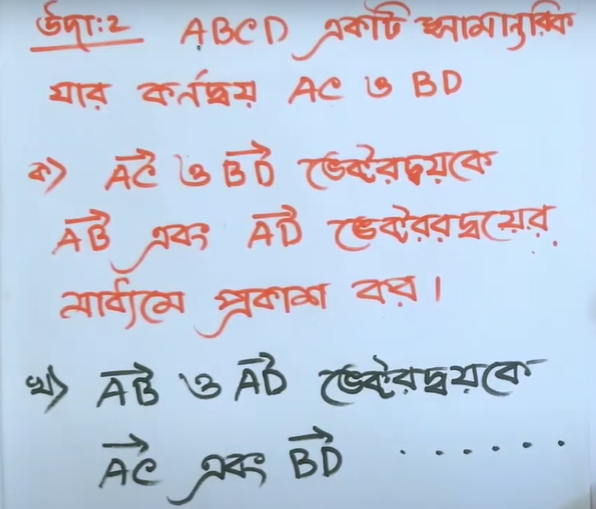 উদা:2 ABCD একটি সামান্তরিক
যার কর্নদ্বয় AC ও BD
ক) AC→ ও BD→ ভেক্টরদ্বয়কে
AB→ এবং AD→ ভেক্টররদ্বয়ের
মাধ্যমে প্রকাশ কর।
খ) AB→ ও AD→ ভেক্টরদ্বয়কে
AC→ এবং BD→ ......